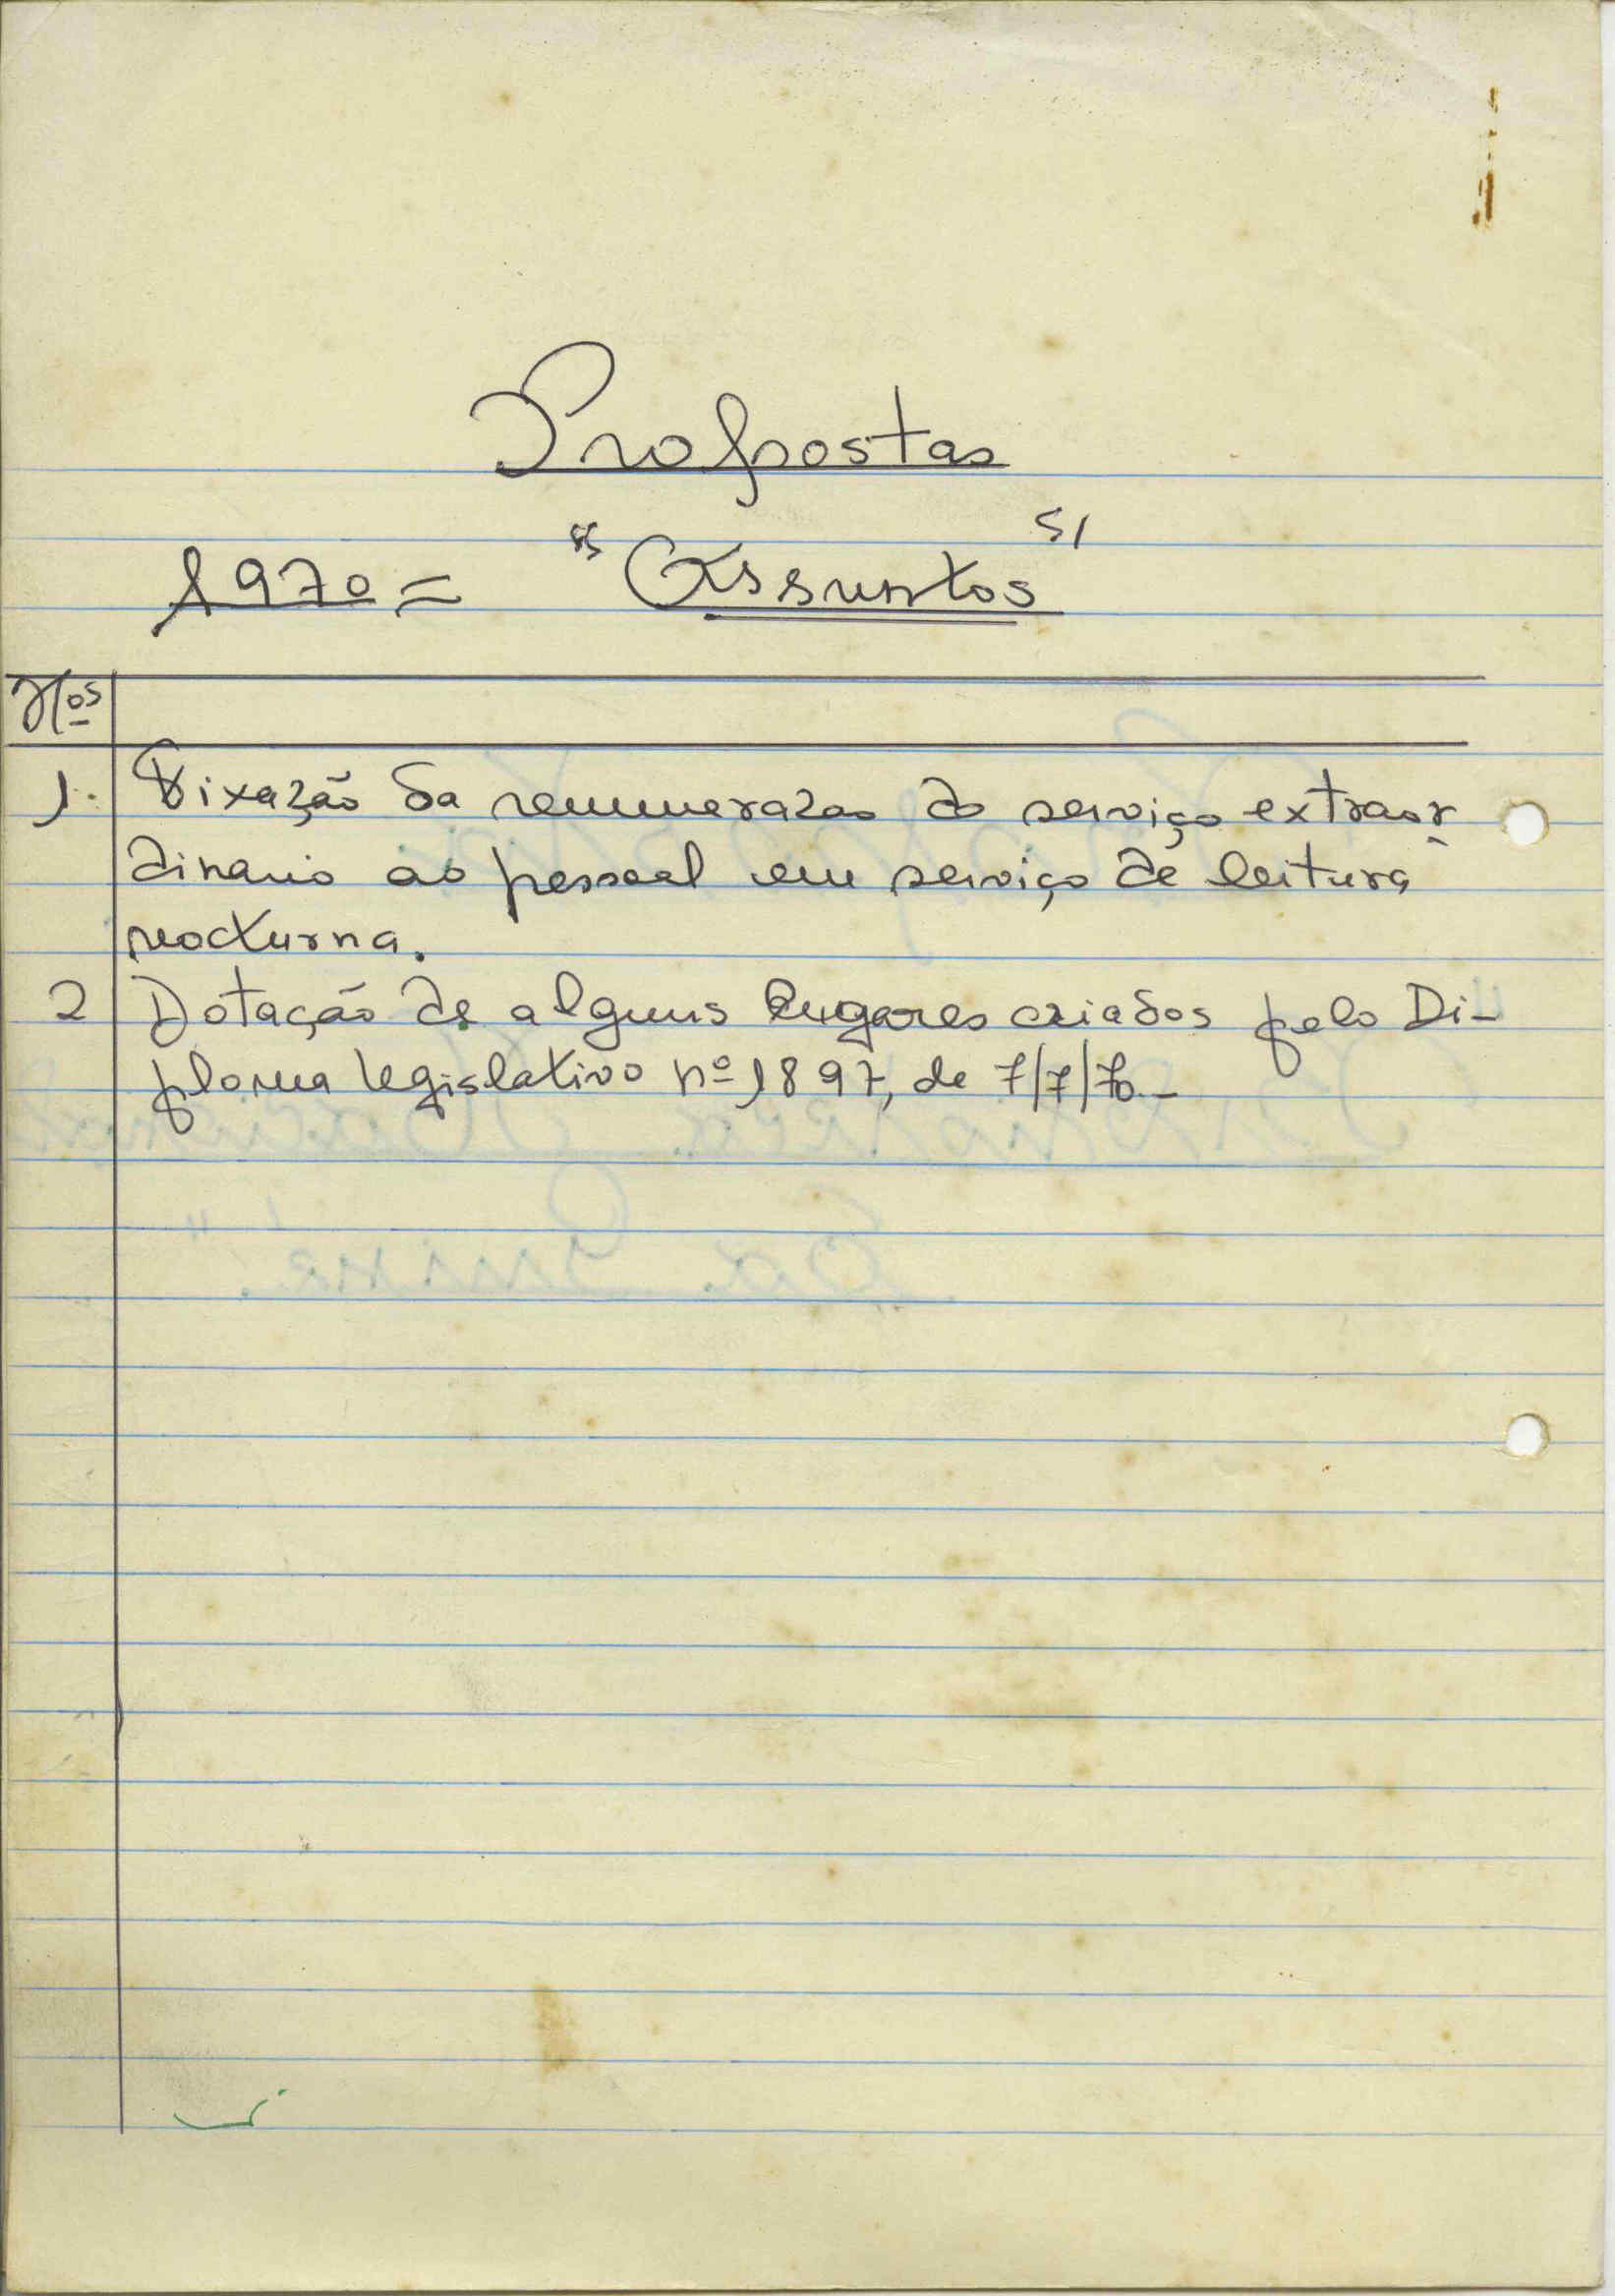 Propostas
1970 = "Assuntos"
Nos
1. Fixação da remuneração do serviço extraor-
dinario ao pessoal em serviço de leitura
nocturna.
2 Dotação de alguns lugares criados pelo Di-
ploma legislativo nº 1897, de 7/7/70.-